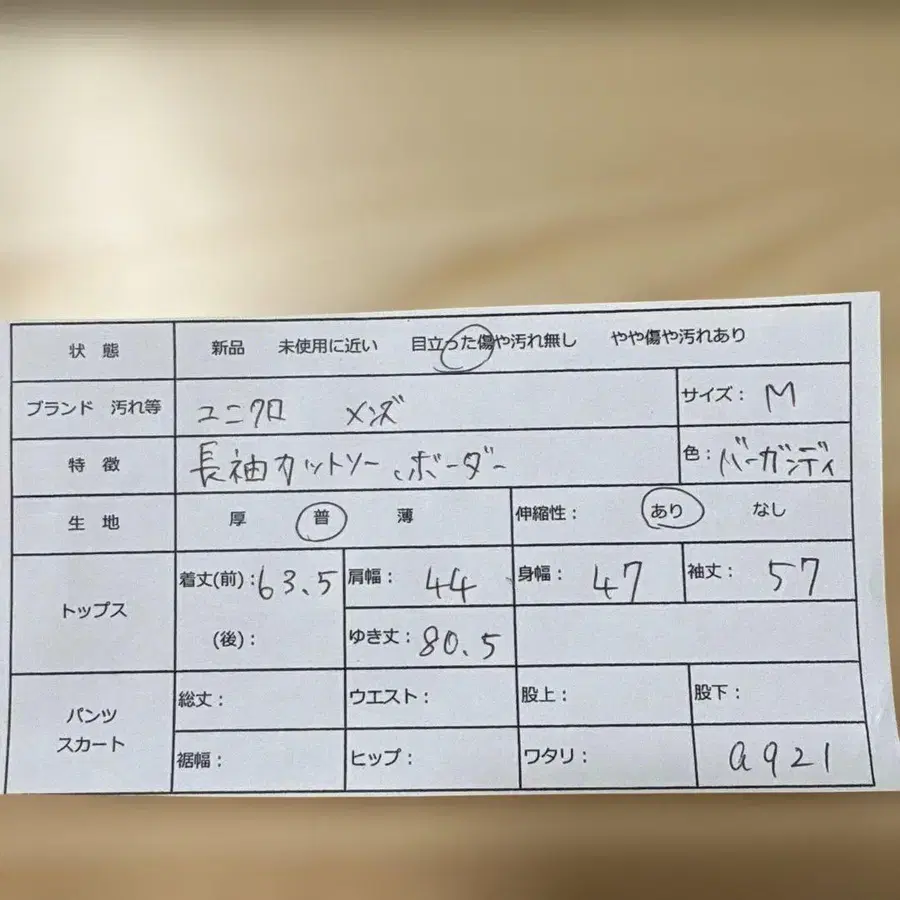 状 態 新品 未使用に近い 目立った傷や汚れ無し やや傷や汚れあり
ブランド 汚れ等 ユニクロ メンズ サイズ： M
特 徴 長袖カットソー、ボーダー 色： バーガンディ
生 地 厚 普 薄 伸縮性： あり なし
トップス 着丈(前)：63.5 肩幅： 44 身幅： 47 袖丈： 57
(後)： ゆき丈： 80.5
パンツ スカート 総丈： ウエスト： 股上： 股下：
裾幅： ヒップ： ワタリ： a921